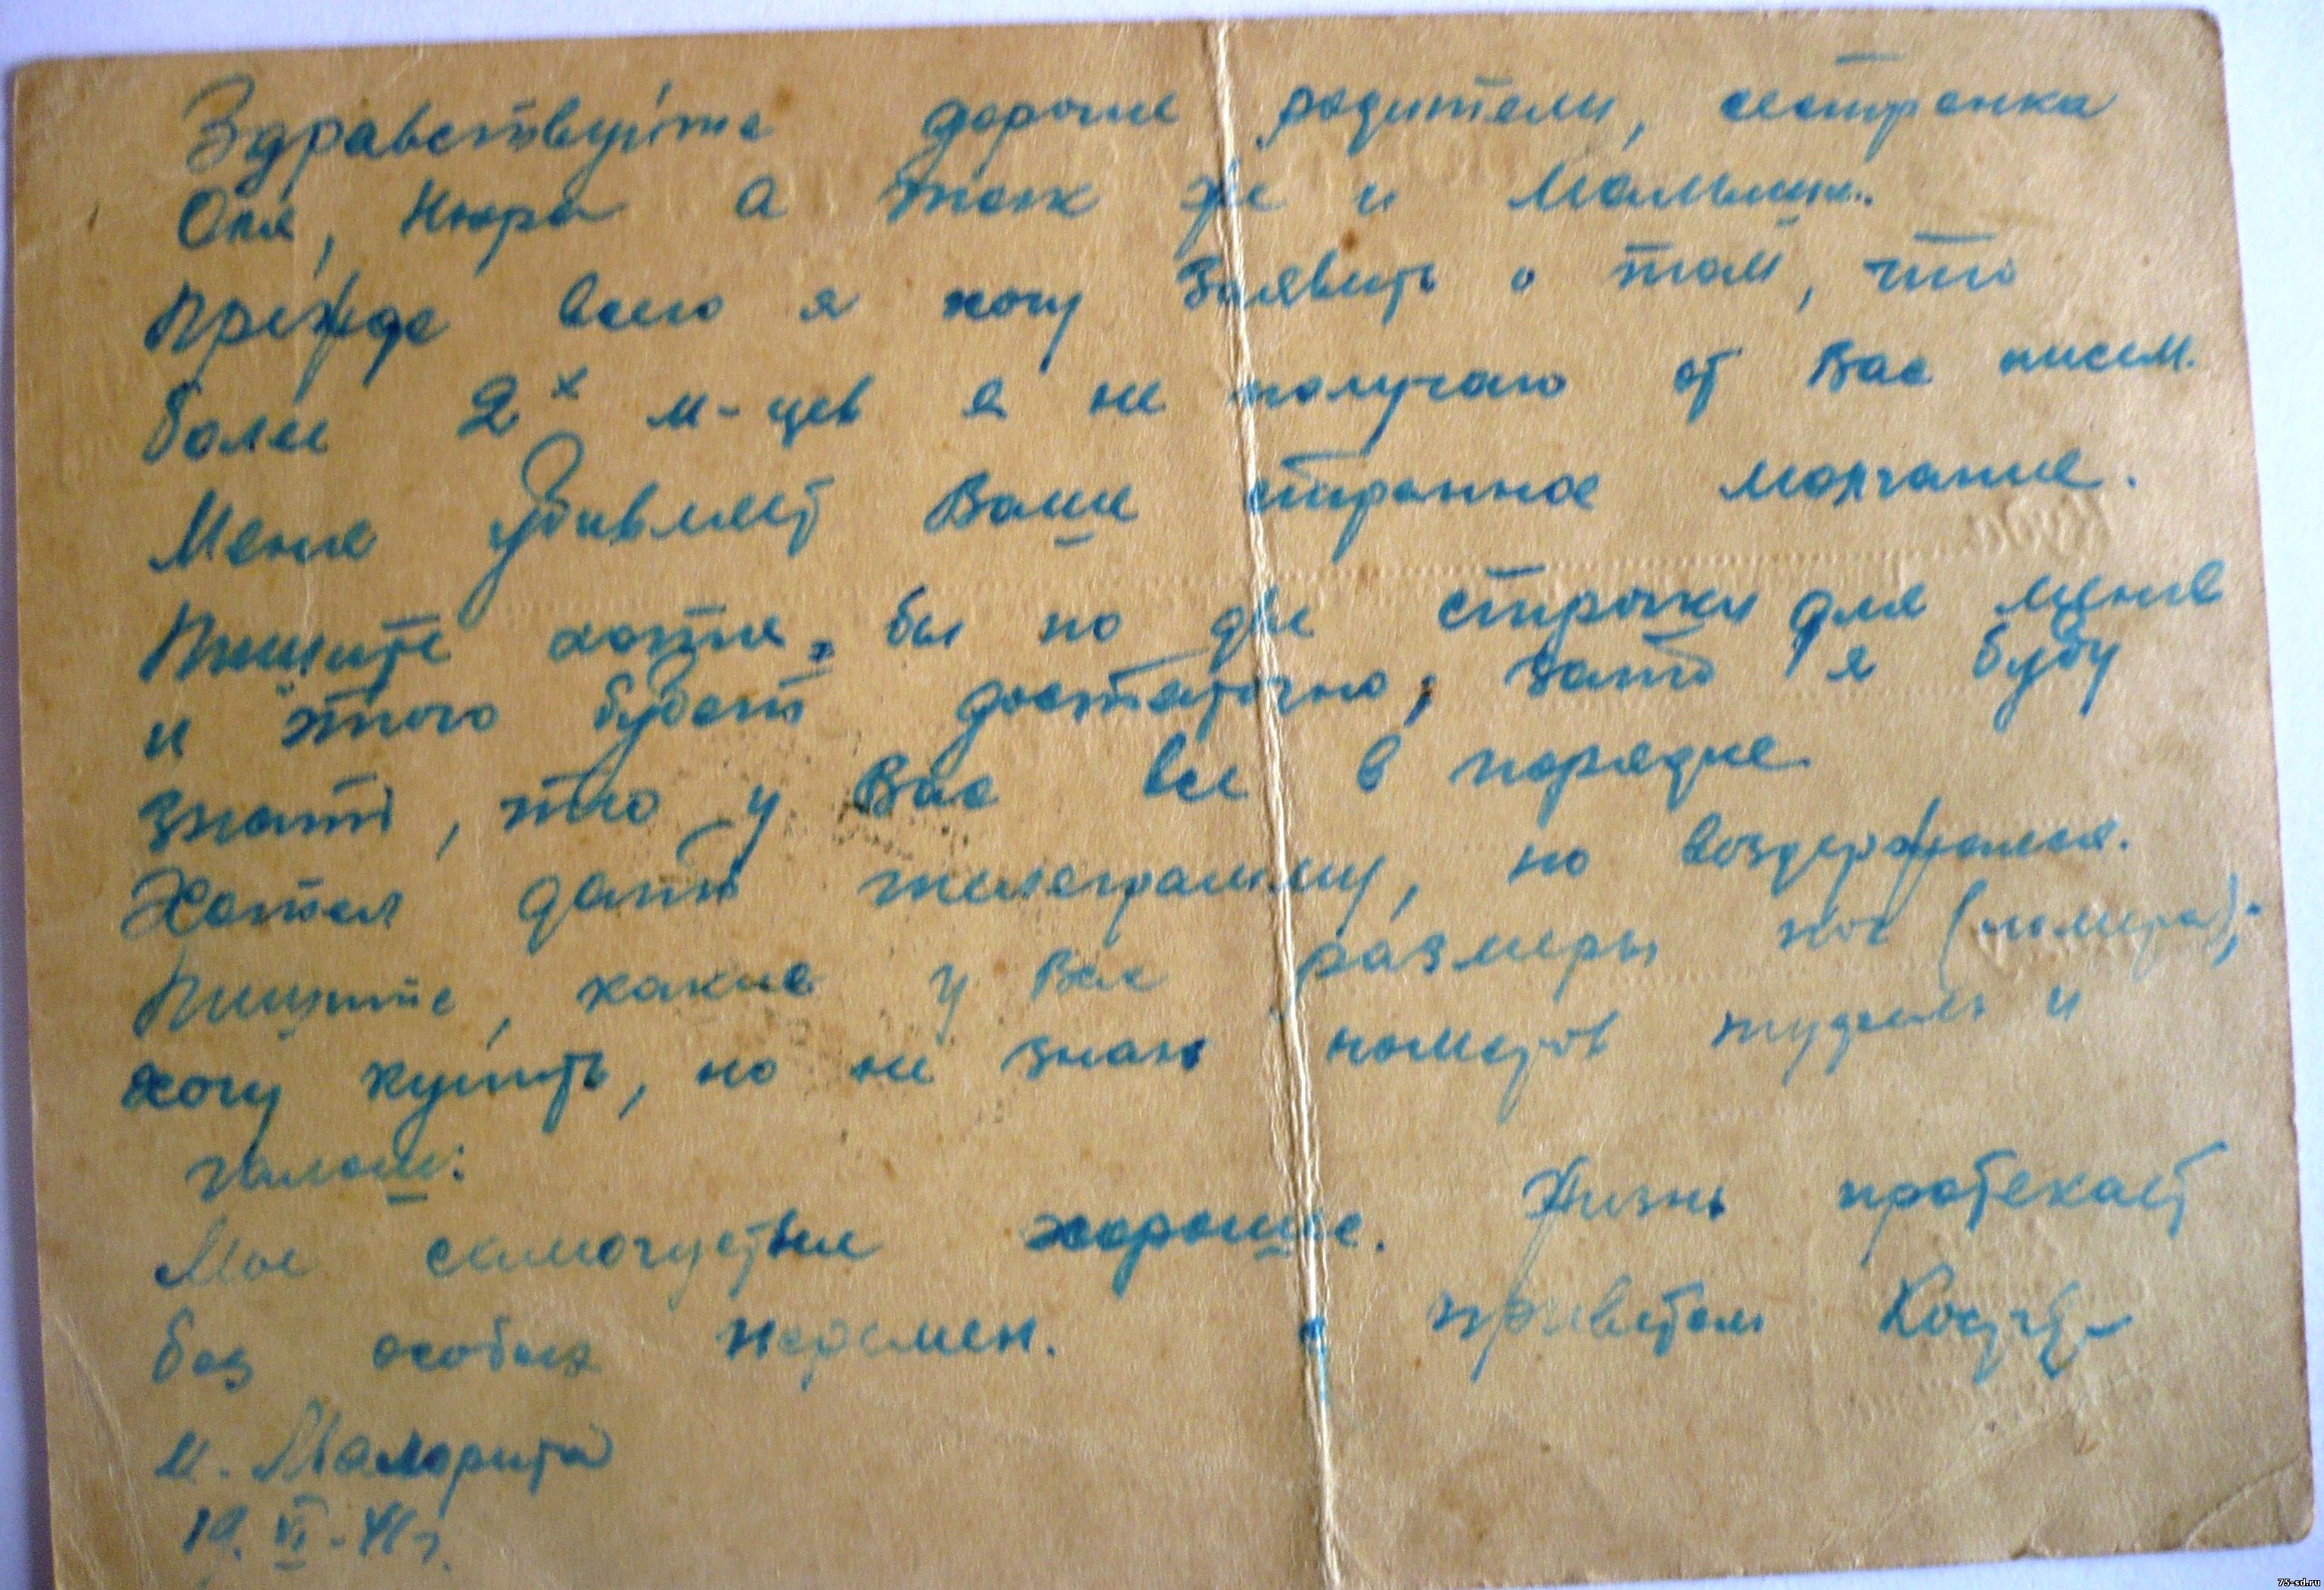 Здравствуйте дорогие родители, сестренка
Оля, Нюра а так же и Малыши.
Прежде всего я хочу заявить о том, что
более 2х м-цев я не получаю от Вас писем.
Меня удивляет Ваше странное молчание.
Пишите хотя, бы по две строчки для меня
и этого будет достаточно, зато я буду
знать, что у Вас все в порядке
Хотел дать телеграмму, но воздержался.
Пишите, какие у Вас размеры ног (номера);
хочу купить, но не знаю номеров туфель и
галош.
Мое самочуствие хорошее. Жизнь протекает
без особых перемен. приветом
м. Маморита
19.VI-41г.
75-sd.ru